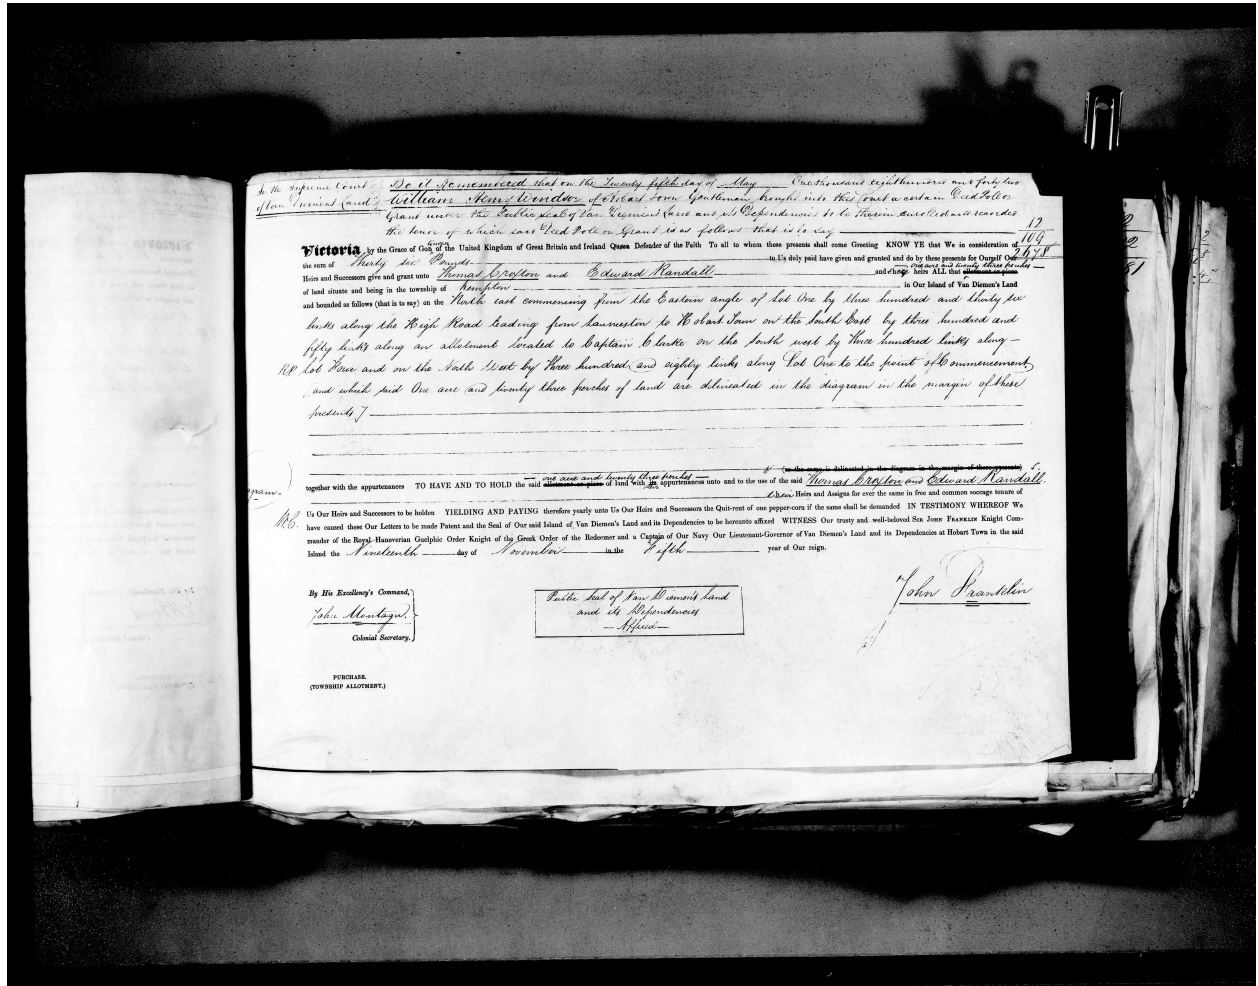 In the Supreme Court
of Van Diemens Land
Be it Remembered that on the Twenty fifth day of May One thousand eight hundred and forty two
William Henry Windsor of Hobart Town Gentleman brought into this Court a certain Deed Poll or
Grant under the Public seal of Van Diemens Land and its Dependencies to be therein enrolled and recorded
the tenor of which said Deed Poll or Grant is as follows that is to say
12
109
2678
Victoria, by the Grace of God Queen of the United Kingdom of Great Britain and Ireland Queen Defender of the Faith To all to whom these presents shall come Greeting KNOW YE that We in consideration of
the sum of Thirty six Pounds to Us duly paid have given and granted and do by these presents for Ourself Our
Heirs and Successors give and grant unto Thomas Crofton and Edward Randall and their heirs ALL that allotment or piece one acre and twenty three perches
of land situate and being in the township of Kempton in Our Island of Van Diemen's Land
and bounded as follows (that is to say) on the North east commencing from the Eastern angle of Lot One by three hundred and thirty six
links along the High Road leading from Launceston to Hobart Town on the South East by three hundred and
fifty links along an allotment located to Captain Clarke on the South west by Three hundred links along
Lot Four and on the North West by Three hundred and eighty links along Lot One to the point of Commencement
and which said One acre and twenty three perches of land are delineated in the diagram in the margin of these
presents
(as the same is delineated in the diagram in the margin of these presents)
one acre and twenty three perches
together with the appurtenances TO HAVE AND TO HOLD the said allotment or piece of land with its appurtenances unto and to the use of the said Thomas Crofton and Edward Randall
their Heirs and Assigns for ever the same in free and common soccage tenure of
Us Our Heirs and Successors to be holden YIELDING AND PAYING therefore yearly unto Us Our Heirs and Successors the Quit-rent of one pepper-corn if the same shall be demanded IN TESTIMONY WHEREOF We
have caused these Our Letters to be made Patent and the Seal of Our said Island of Van Diemen's Land and its Dependencies to be hereunto affixed WITNESS Our trusty and well-beloved SIR JOHN FRANKLIN Knight Com-
mander of the Royal Hanoverian Guelphic Order Knight of the Greek Order of the Redeemer and a Captain of Our Navy Our Lieutenant-Governor of Van Diemen's Land and its Dependencies at Hobart Town in the said
Island the Nineteenth day of November in the Fifth year of Our reign.
By His Excellency's Command,
John Montagu.
Colonial Secretary.
Public Seal of Van Diemen's Land
and its Dependencies
Affixed
John Franklin
PURCHASE.
(TOWNSHIP ALLOTMENT.)